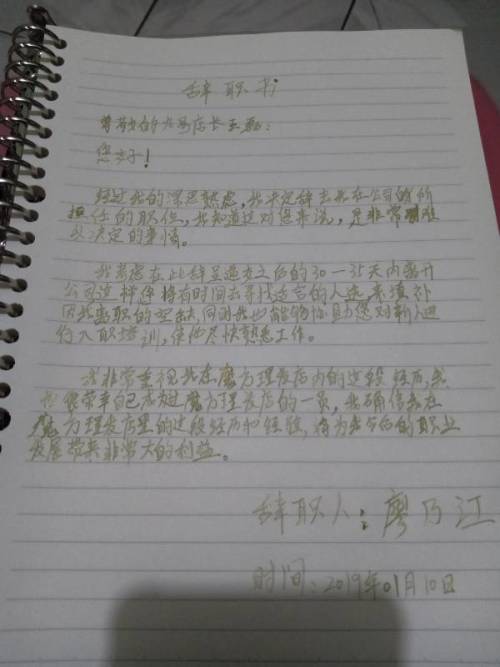 辞职书
尊敬的九号店长
您好！
经过我的深思熟虑,我决定辞去我在公司的所
担任的职位,我知道这对您来说,是非常难
以决定的事情。
我考虑在此辞呈递交之后的30—35天内离开
公司这样您将有时间去寻找适合的人选来填补
因我离职的空缺,同时我也能够协助您对新人进
行入职培训,使他尽快熟悉工作。
我非常重视我在魔方理发店内的这段经历,我
很荣幸自己成为过魔方理发店的一员,我确信我在
魔方理发店里的这段经历和经验,将为我今后的职业
发展带来非常大的利益。
辞职人:廖乃江
时间:2019年01月10日